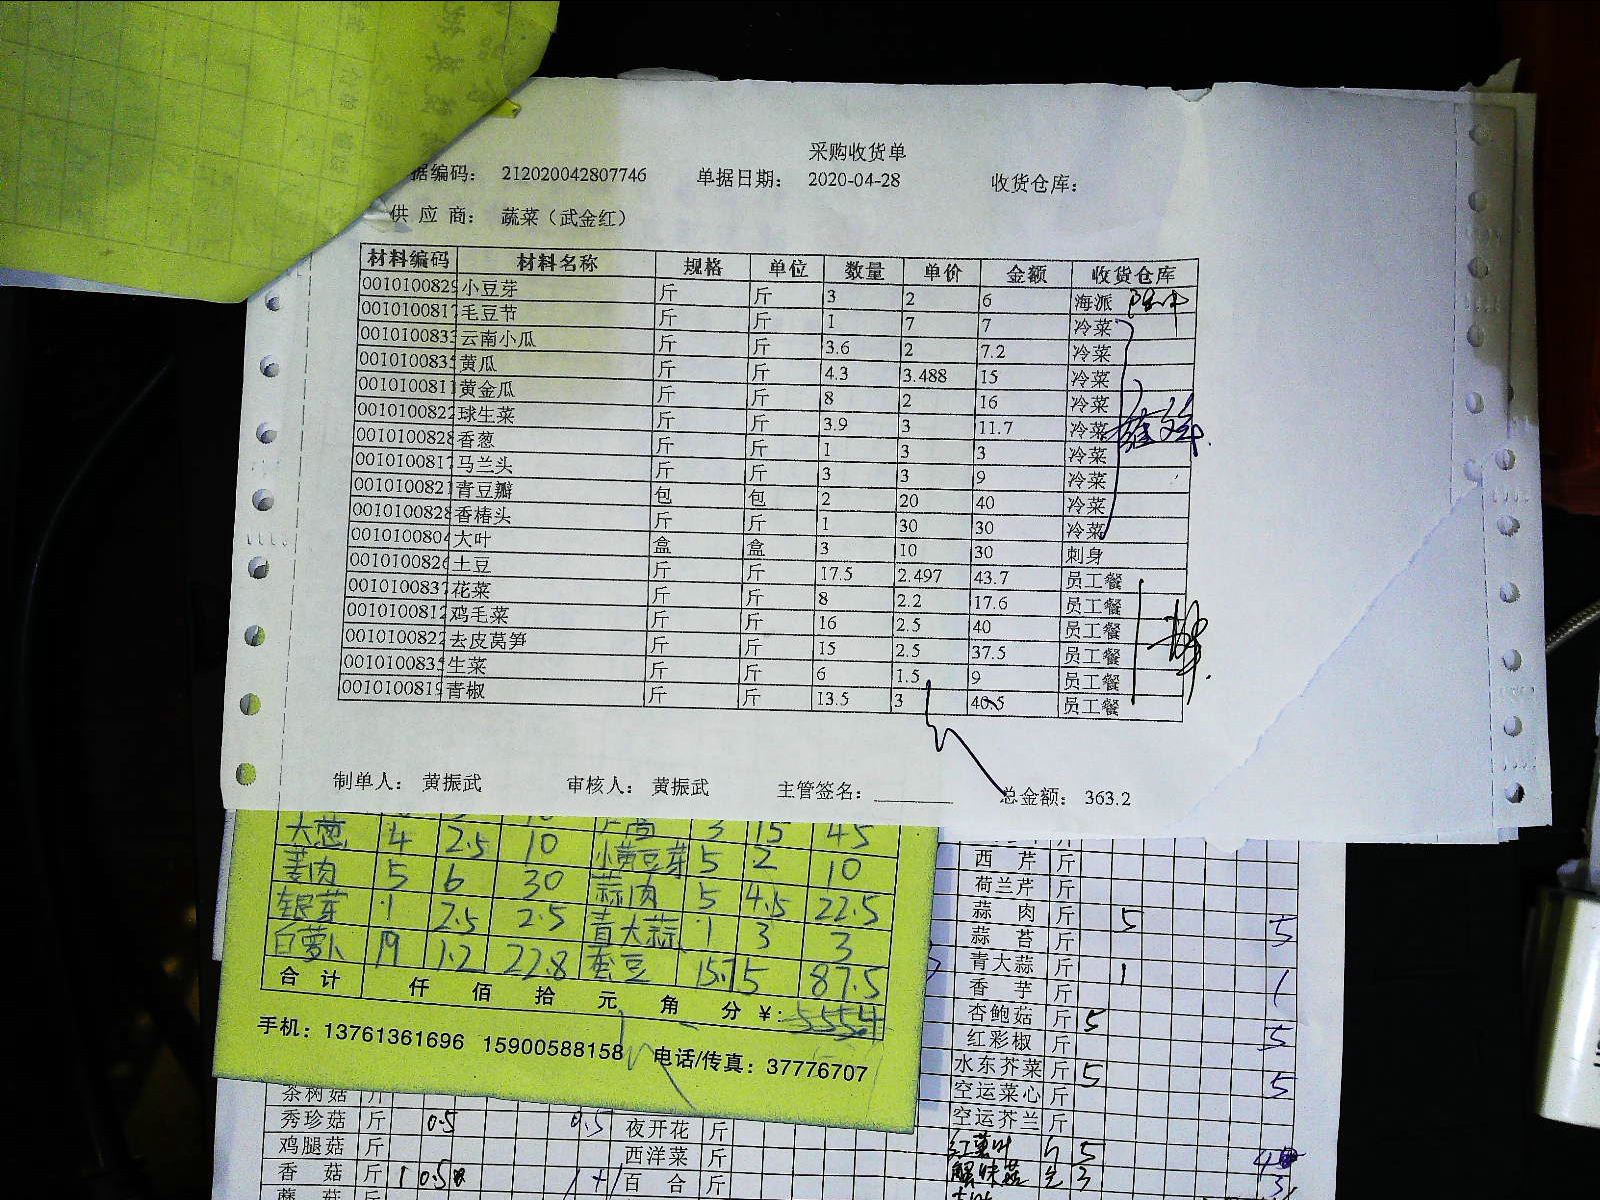 采购收货单
据编码： 212020042807746 单据日期： 2020-04-28 收货仓库：
供 应 商： 蔬菜（武金红）
材料编码 材料名称 规格 单位 数量 单价 金额 收货仓库
001010082 小豆芽 斤 斤 3 2 6 海派
001010081 毛豆节 斤 斤 1 7 7 冷菜
001010083 云南小瓜 斤 斤 3.6 2 7.2 冷菜
001010083 黄瓜 斤 斤 4.3 3.488 15 冷菜
001010081 黄金瓜 斤 斤 8 2 16 冷菜
001010082 球生菜 斤 斤 3.9 3 11.7 冷菜
001010082 香葱 斤 斤 1 3 3 冷菜
001010081 马兰头 斤 斤 3 3 9 冷菜
001010082 青豆瓣 包 包 2 20 40 冷菜
001010082 香椿头 斤 斤 1 30 30 冷菜
001010080 大叶 盒 盒 3 10 30 刺身
001010082 土豆 斤 斤 17.5 2.497 43.7 员工餐
001010083 花菜 斤 斤 8 2.2 17.6 员工餐
001010081 鸡毛菜 斤 斤 16 2.5 40 员工餐
001010082 去皮莴笋 斤 斤 15 2.5 37.5 员工餐
001010083 生菜 斤 斤 6 1.5 9 员工餐
001010081 青椒 斤 斤 13.5 3 40.5 员工餐
制单人： 黄振武 审核人： 黄振武 主管签名： 总金额： 363.2
大葱 4 2.5 10 3 15 45
姜肉 5 6 30 小黄豆芽 5 2 10
银芽 1 2.5 2.5 蒜肉 5 4.5 22.5
白萝卜 19 1.2 22.8 青大蒜 1 3 3
蚕豆 5 87.5
合 计 仟 佰 拾 元 角 分 ¥:
手机：13761361696 15900588158 电话/传真：37776707
西 芹 斤
荷兰芹 斤
蒜 肉 斤 5 5
蒜 苔 斤
青大蒜 斤 1 1
香 芋 斤
杏鲍菇 斤 5
红彩椒 斤 5
水东芥菜 斤 5 5
空运菜心 斤
空运芥兰 斤
5
蟹味菇 3 3
茶树菇 斤
秀珍菇 斤 0.5 0.5 夜开花 斤
鸡腿菇 斤 西洋菜 斤
香 菇 斤 1 0.5 百 合 斤